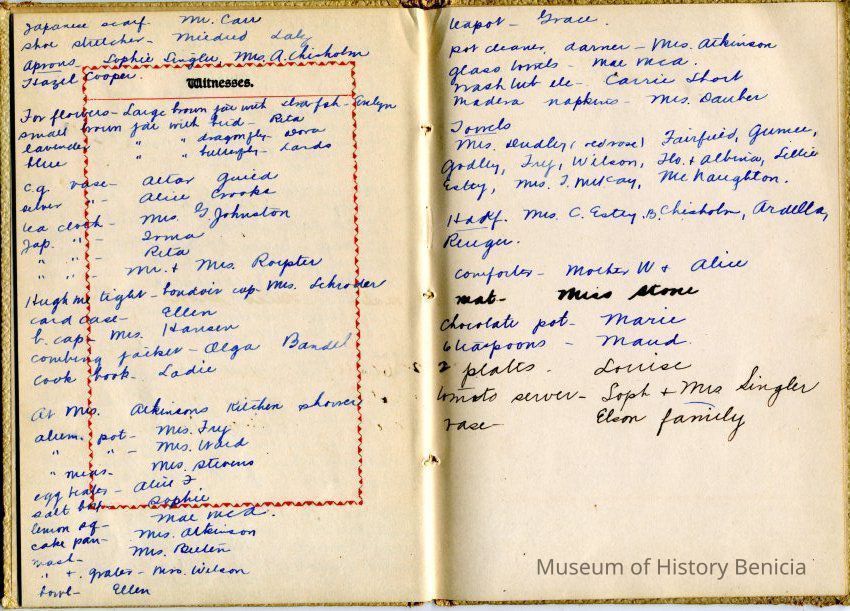 Japanese scarf - Mr. Carr
shoe stretcher - Mildred Daly
aprons - Sophie Singler, Mrs. A. Chisholm
Hazel Cooper.
Witnesses.
For flowers - Large brown jar with - Evelyn
small brown jar with bird - Rita
lavender " " dragonfly - Dora
blue " " butterfly -
c.g. vase - Altar Guild
silver " - Alice Crooks
tea cloth - Mrs. G Johnston
Jap. " - Irma
" " - Rita
" " - Mr. & Mrs. Royster
Hugh me tight - boudoir cap - Mrs. Schroder
card case - Ellen
b. cap - Mrs. Hansen
combing jacket - Olga Bandel
cook book - Ladie
At Mrs. Atkinsons Kitchen shower
alum. pot - Mrs. Fry
" " - Mrs. Ward
" meas - Mrs. Stevens
egg beater - Alice F
salt box - Sophie
lemon sq - Mae McA.
cake pan - Mrs. Atkinson
mash - Mrs.
" + grater - Mrs. Wilson
bowl - Ellen
teapot - Grace.
pot cleaner, darner - Mrs. Atkinson
glass towels - Mae McA.
wash tub etc - Carrie Short
Madera napkins - Mrs. Dauber
Towels
Mrs. Dudley (red rose) Fairfield, Gumee,
Godley, Fry, Wilson, Flo. & Albina, Lillie
Estey, Mrs. J. McKay, McNaughton.
Hdkf. Mrs. C. Estey, B. Chisholm, Ardella,
Renger.
comforter - Mother W & Alice
mat - Miss Stone
chocolate pot - Marie
6 teaspoons - Maud
2 plates - Louise
tomato server - Soph & Mrs Singler
vase - Elson family
Museum of History Benicia